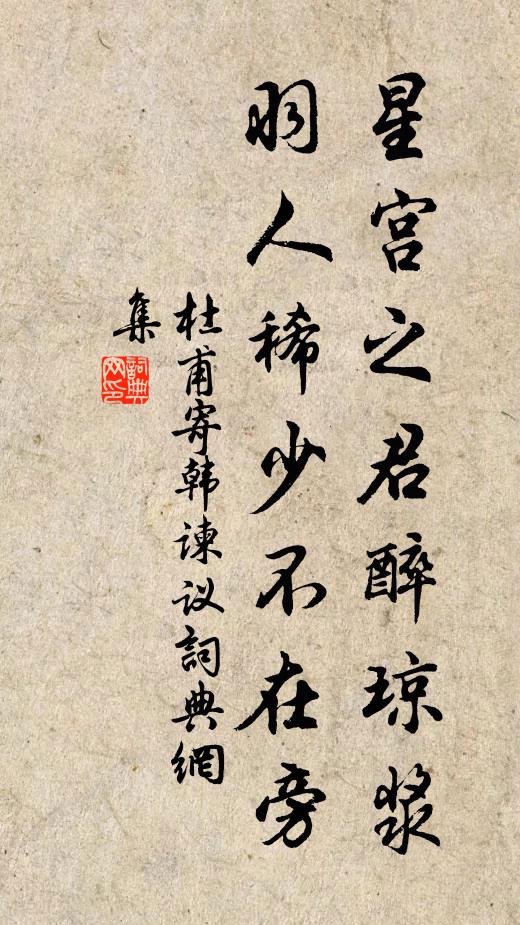 星宫之君醉琼浆
羽人稀少不在旁
杜甫寄韩谏议詞典網
集
詞典
网印